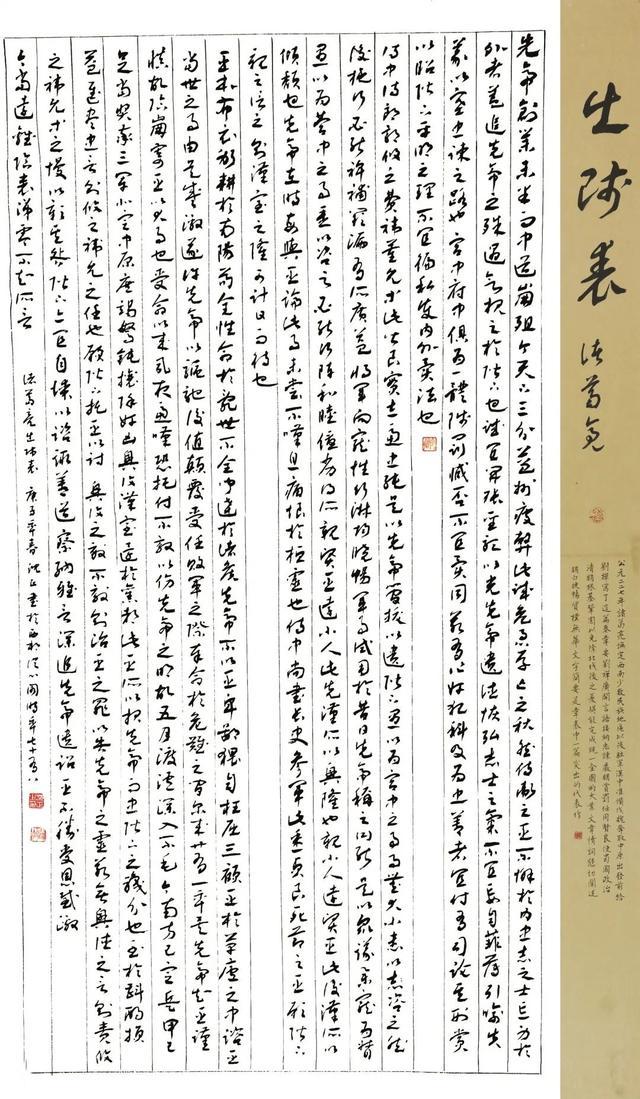 出师表
诸葛亮
公元二二七年諸葛亮定西南少數民族地區後駐軍漢中準備伐魏奪取中原出發前給
劉禪寫了這篇奏章要劉禪廣開言語接納忠諫嚴明賞罰任用賢良使蜀國政治
清明根基鞏固以免除北伐後之憂能完成統一全國的大業文章情詞懇切闡述
明白曉暢質樸無華文字簡要是章表中一篇突出的代表作
先帝創業未半而中道崩殂今天下三分益州疲弊此誠危急存亡之秋然侍衛之臣不懈於内忠志之士忘身於
外者蓋追先帝之殊遇欲報之於陛下也誠宜開張聖聽以光先帝遺德恢弘志士之氣不宜妄自菲薄引喻失
義以塞忠諫之路也宮中府中俱為一體陟罰臧否不宜異同若有作奸犯科及忠善者宜付有司論其刑賞
以昭陛下平明之理不宜偏私使内外異法也
侍中侍郎郭攸之費禕董允等此皆良實志慮忠純是以先帝簡拔以遺陛下愚以為宮中之事事無大小悉以咨之然
後施行必能裨補闕漏有所廣益將軍向寵性行淑均曉暢軍事試用於昔日先帝稱之曰能是以眾議舉寵為督
愚以為營中之事悉以咨之必能行陣和睦優劣得所親賢臣遠小人此先漢所以興隆也親小人遠賢臣此後漢所以
傾頹也先帝在時每與臣論此事未嘗不嘆息痛恨於桓靈也侍中尚書長史參軍此悉貞良死節之臣願陛下
親之信之則漢室之隆可計日而待也
臣本布衣躬耕於南陽苟全性命於亂世不求聞達於諸侯先帝不以臣卑鄙猥自枉屈三顧臣於草廬之中諮臣
當世之事由是感激遂許先帝以驅馳後值顛覆受任敗軍之際奉命於危難之間爾來廿有一年矣先帝知臣謹
慎故臨崩寄臣以大事也受命以來夙夜憂嘆恐托付不效以傷先帝之明故五月渡瀘深入不毛今南方已定兵甲已
足當獎率三軍北定中原庶竭駑鈍攘除奸凶興復漢室還於舊都此臣所以報先帝而忠陛下之職分也至於斟酌損
益進盡忠言則攸之禕允之任也願陛下托臣以討賊興復之效不效則治臣之罪以告先帝之靈若無興德之言則責攸
之禕允等之慢以彰其咎陛下亦宜自謀以諮諏善道察納雅言深追先帝遺詔臣不勝受恩感激
今當遠離臨表涕零不知所言
諸葛亮出師表 庚子年春沈正書於西松从心閣時年七十有八